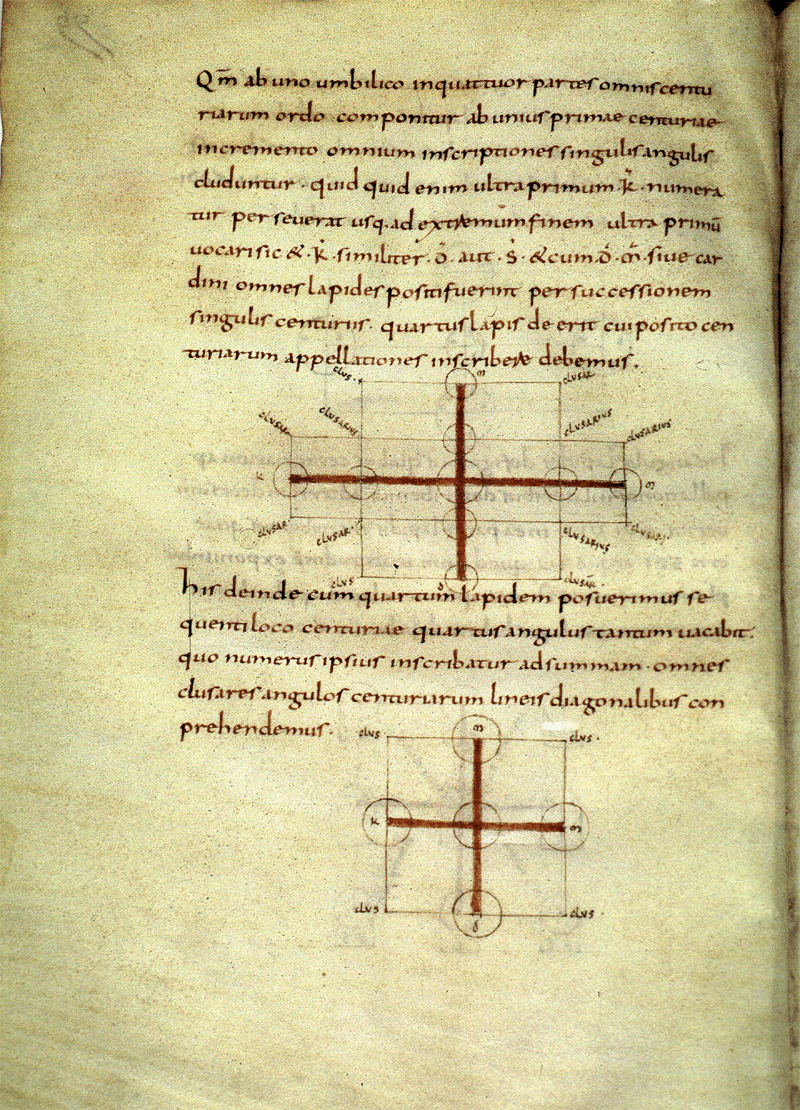 Qm̄ ab uno umbilico inquattuor partes omnis centu
riarum ordo componitur ab unius primae centuriae
incremento omnium inscriptiones singulis angulis
cluduntur · quid quid enim ultra primum · k̄ · numera
tur perseuerat usq. ad extremum finem ultra primū
uocari sic & · k̄ · similiter · ō · aut · s̄ · & cum · ō · m̄ · siue car
dini omnes lapides positi fuerint per successionem
singulis centuriis · quartus lapis deerit cui posito cen
turiarum appellationes inscribere debemus ·
clus · m clusar
clusar clusarius clusarius clusarius
k m
clusar clusar clusarius clusar
clus δ clusar
his deinde cum quartum lapidem posuerimus se
quenti loco centuriae quartus angulus tantum uacabit :
quo numerus ipsius inscribatur ad summam · omnes
clusares angulos centuriarum lineis diagonalibus con
prehendemus ·
clus m clus ·
k m
clus δ clus ·